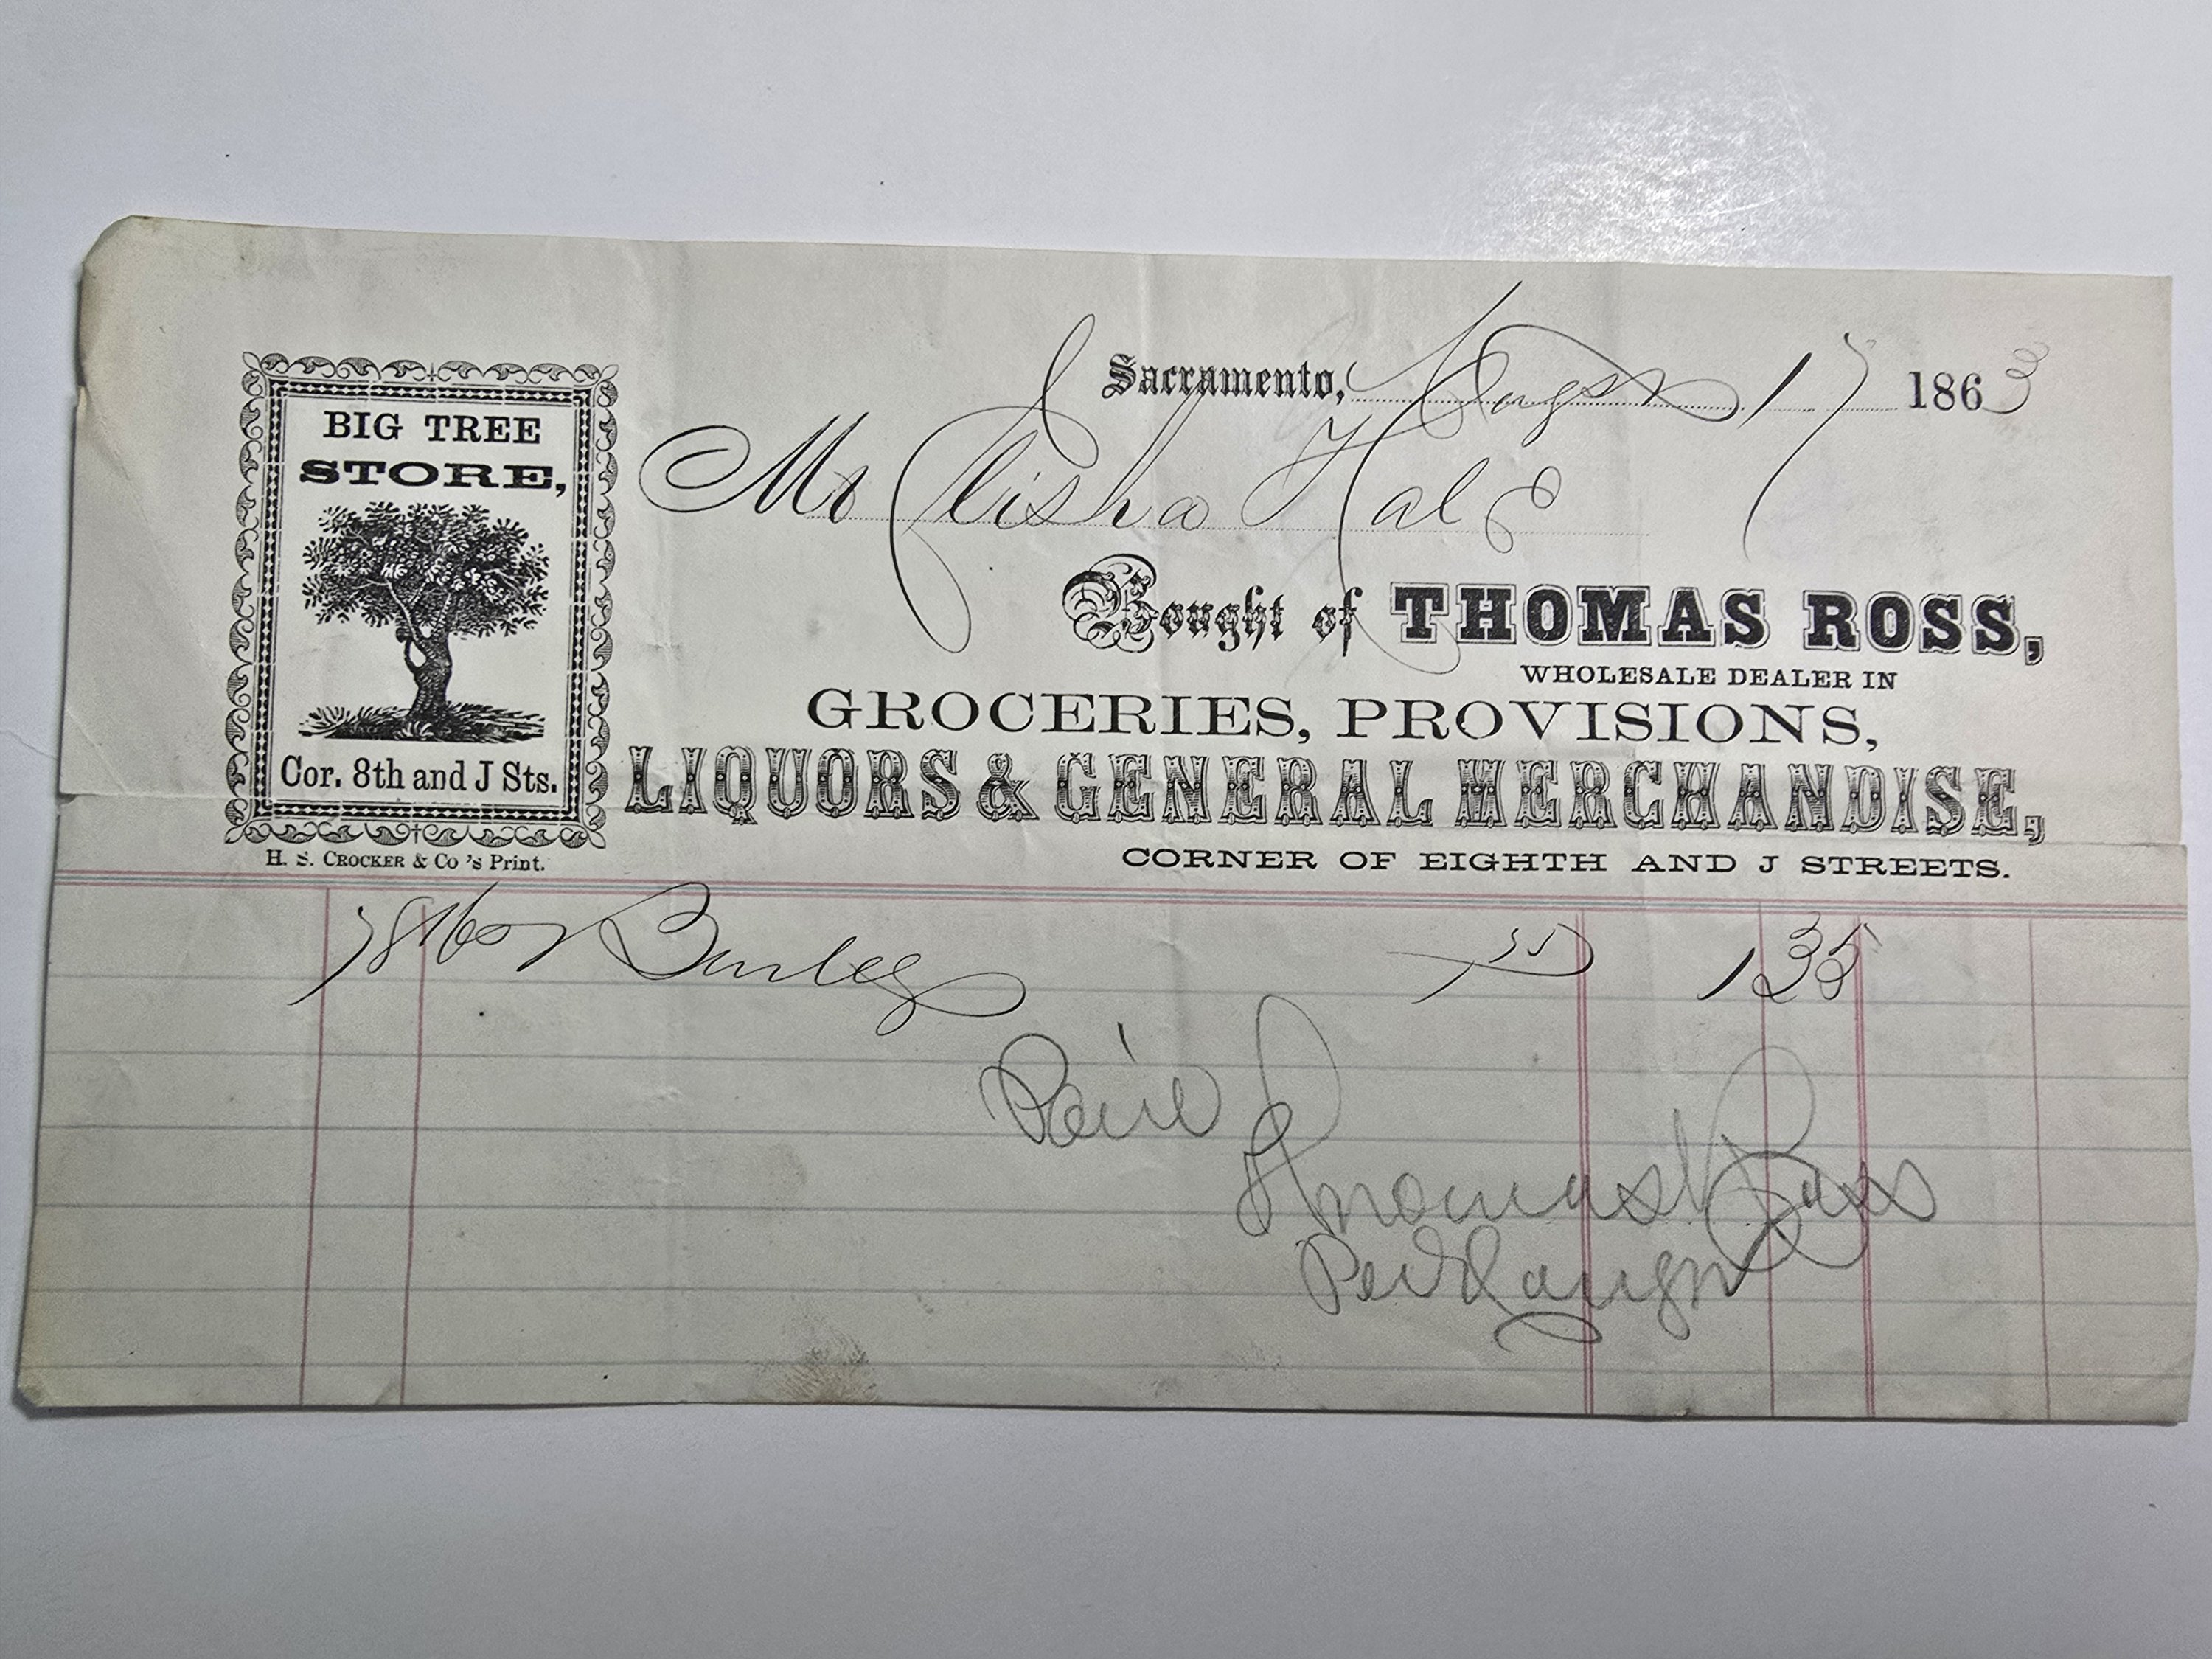 BIG TREE
STORE,
Cor. 8th and J Sts.
H. S. CROCKER & Co 's Print.
Sacramento, August 17 1863
Mr Elisha Hale
Bought of THOMAS ROSS,
WHOLESALE DEALER IN
GROCERIES, PROVISIONS,
LIQUORS & GENERAL MERCHANDISE,
CORNER OF EIGHTH AND J STREETS.
78 lbs Barley 135
Paid
Thomas Ross
Per